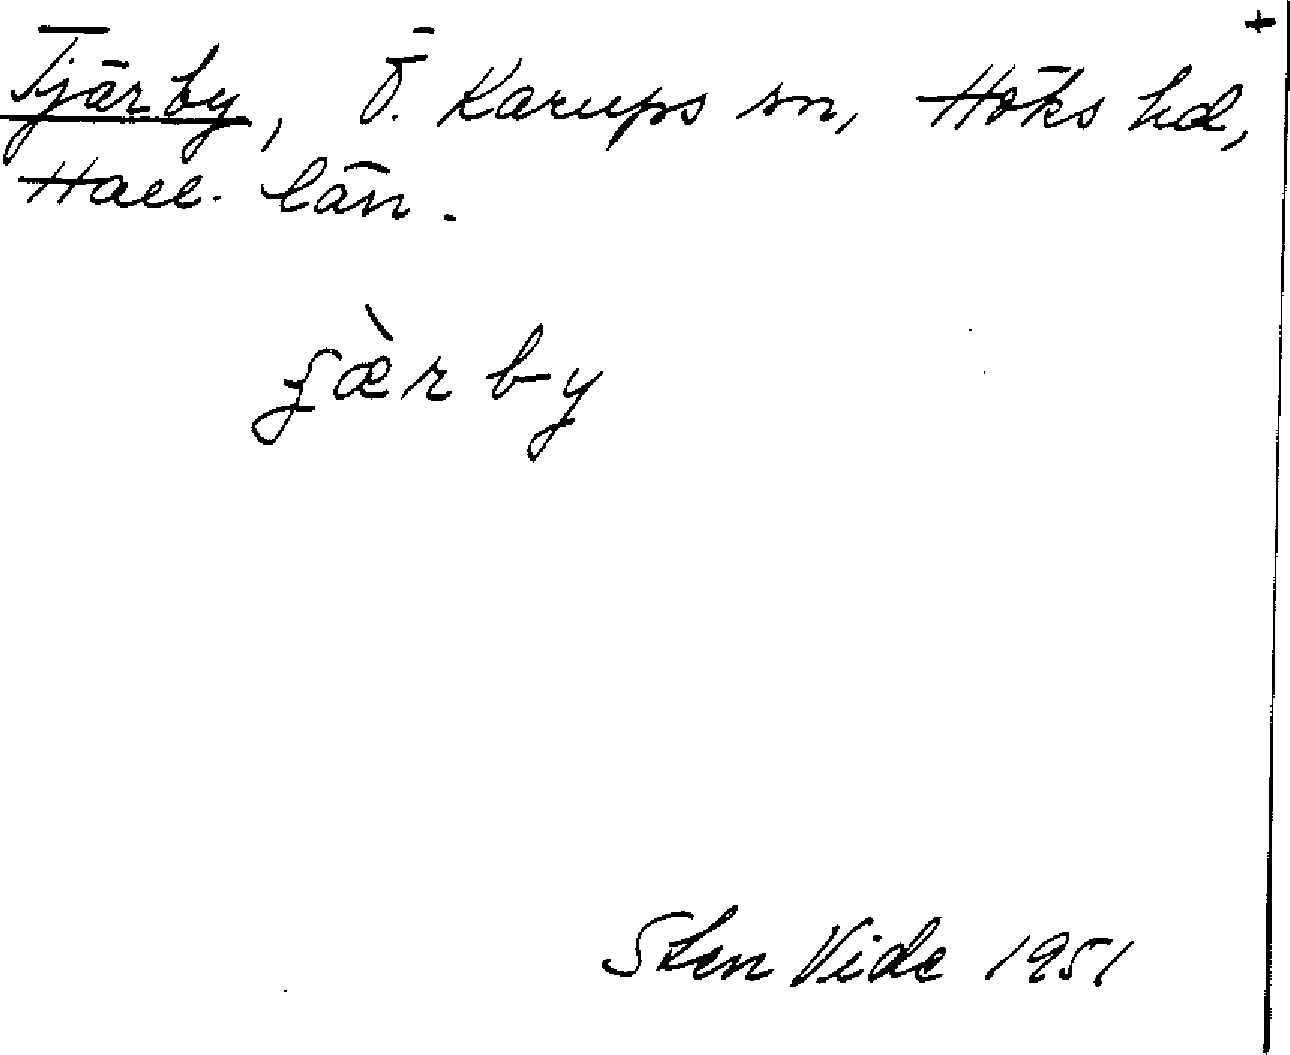 +
Tjärby, Ö. Karups sn, Höks hd,
Hall. län.
ʃæ̀rby
Sten Vide 1951